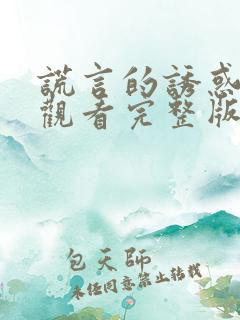 謊言的誘惑
觀看完整版
包天師
未經同意禁止轉載